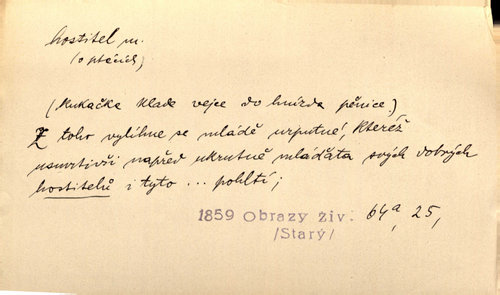 hostitel m.
(o ptácích)
(Kukačka klade vejce do hnízda pěnice,)
Z toho vylíhne se mládě urputné, kteréž
usmrtivši napřed ukrutně mláďata svých dobrých
hostitelů i tyto ... pohltí;
1859 Obrazy živ. 64a, 25,
/Starý/